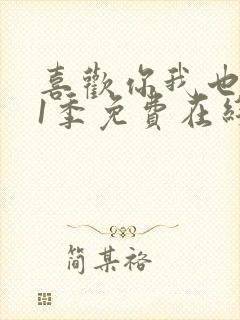 喜歡你我也
1季免費在線
簡某袼